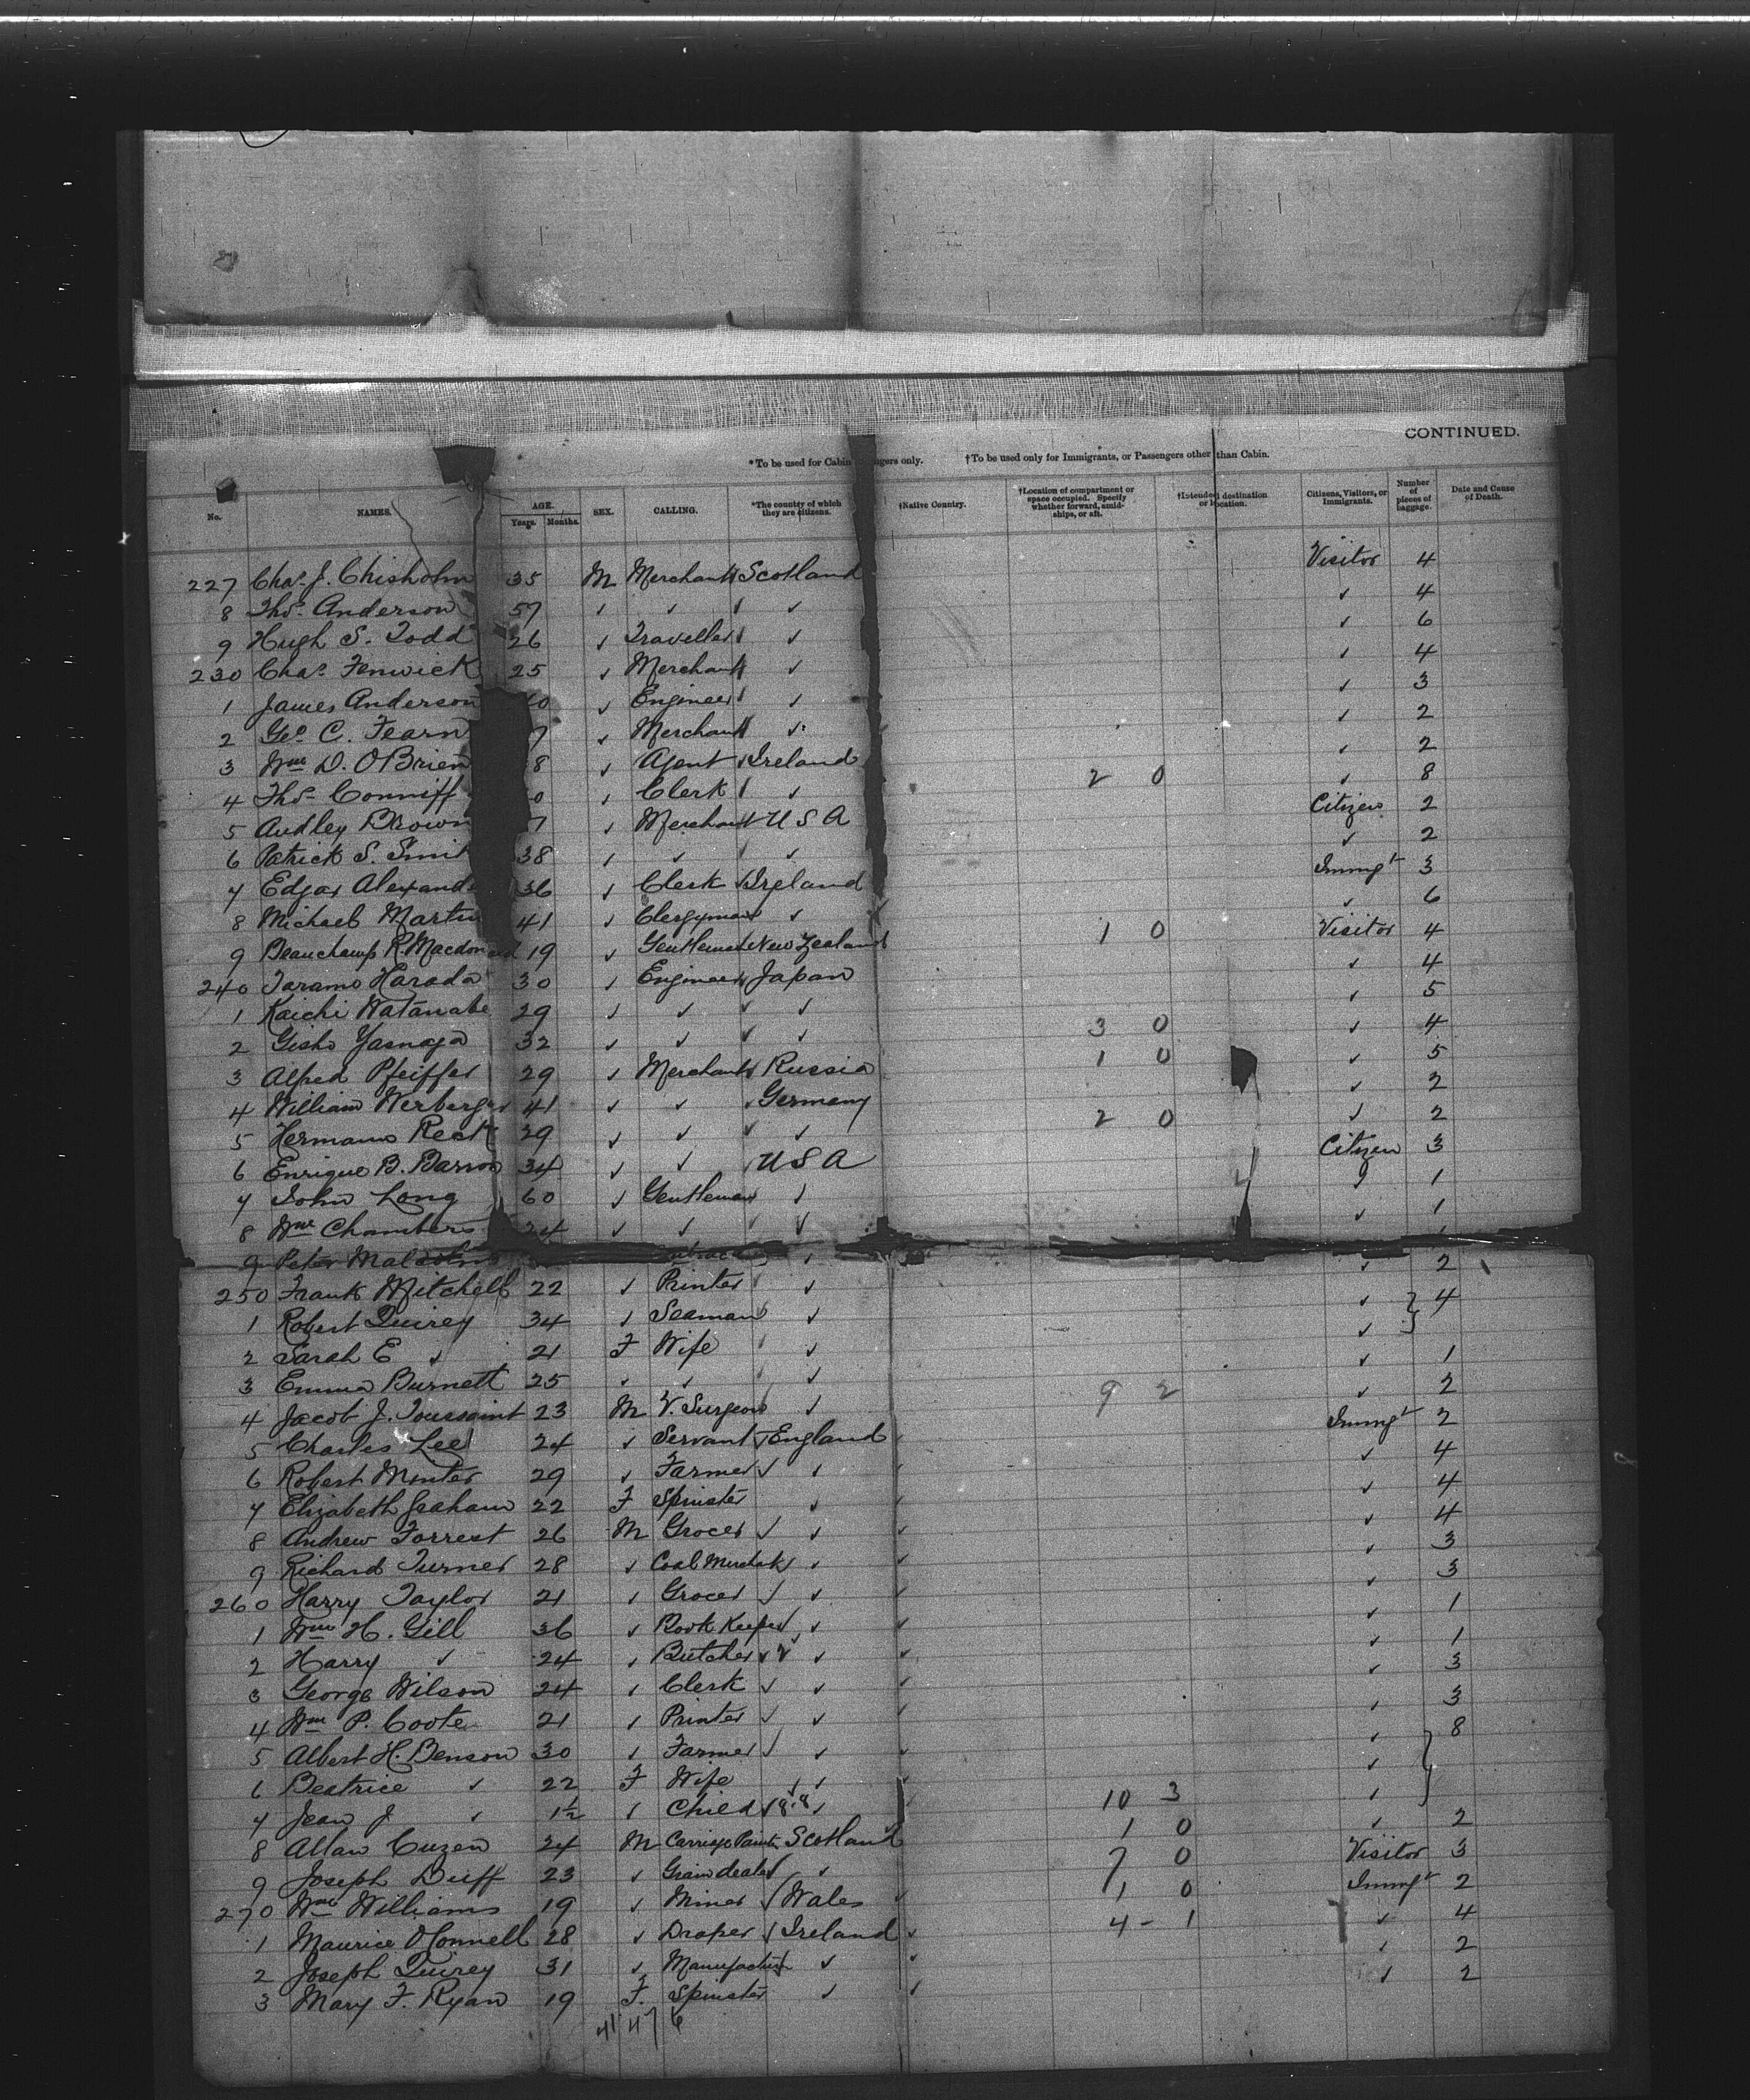 CONTINUED.
*To be used for Cabin ngers only. †To be used only for Immigrants, or Passengers other than Cabin.
No. NAMES. AGE. Years. Months. SEX. CALLING. *The country of which they are citizens. †Native Country. †Location of compartment or space occupied. Specify whether forward, amidships, or aft. †Intended destination or location. Citizens, Visitors, or Immigrants. Number of pieces of baggage. Date and Cause of Death.
227 Chas. J. Chisholm 35 M Merchant Scotland Visitor 4
8 Thos. Anderson 57 ✓ ✓ ✓ ✓ 4
9 Hugh S. Todd 26 ✓ Traveller ✓ ✓ 6
230 Chas. Fenwick 25 ✓ Merchant ✓ ✓ 4
1 James Anderson 0 ✓ Engineer ✓ ✓ 3
2 Geo C. Fearn 7 ✓ Merchant ✓ ✓ 2
3 Wm D. O'Brien 8 ✓ Agent Ireland ✓ 2
4 Thos. Conniff 0 ✓ Clerk ✓ 2 0 ✓ 8
5 Audley Brown 7 ✓ Merchant U S A Citizen 2
6 Patrick S. Smit 38 ✓ ✓ ✓ ✓ 2
7 Edgar Alexand 36 ✓ Clerk Ireland Immgt 3
8 Michael Martin 41 ✓ Clergyman ✓ ✓ 6
9 Beauchamp R. Macdonald 19 ✓ Gentleman New Zealand 1 0 Visitor 4
240 Taramo Harada 30 ✓ Engineer Japan ✓ 4
1 Kaichi Watanabe 29 ✓ ✓ ✓ ✓ ✓ 5
2 Gisho Yasnaga 32 ✓ ✓ ✓ ✓ 3 0 ✓ 4
3 Alfred Pfeiffer 29 ✓ Merchant Russia 1 0 ✓ 5
4 William Werberger 41 ✓ ✓ ✓ Germany ✓ 2
5 Hermann Reck 29 ✓ ✓ ✓ ✓ 2 0 ✓ 2
6 Enrique B. Barron 34 ✓ ✓ U S A Citizen 3
7 John Long 60 ✓ Gentleman ✓ ✓ 1
8 Wm Chambers 24 ✓ ✓ ✓ ✓ ✓ 1
9 Peter Malcolm ✓
250 Frank Mitchell 22 ✓ Printer ✓ ✓ 2
1 Robert Quirey 34 ✓ Seaman ✓ ✓ } 4
2 Sarah E ✓ 21 F Wife ✓ ✓
3 Emma Burnett 25 ✓ ✓ ✓ ✓ 1
4 Jacob J. Toussaint 23 M V. Surgeon ✓ 9 2 ✓ 2
5 Charles Lee 24 ✓ Servant England Immgt 2
6 Robert Minter 29 ✓ Farmer ✓ ✓ ✓ 4
7 Elizabeth Graham 22 F Spinster ✓ ✓ 4
8 Andrew Forrest 26 M Grocer ✓ ✓ ✓ 4
9 Richard Turner 28 ✓ Coal Merchant ✓ ✓ 3
260 Harry Taylor 21 ✓ Grocer ✓ ✓ ✓ 3
1 Wm H. Gill 36 ✓ Book Keeper ✓ ✓ 1
2 Harry ✓ 24 ✓ Butcher ✓ ✓ ✓ 1
3 George Wilson 24 ✓ Clerk ✓ ✓ ✓ 3
4 Wm P. Coote 21 ✓ Printer ✓ ✓ ✓ 3
5 Albert H. Benson 30 ✓ Farmer ✓ ✓ ✓ } 8
6 Beatrice ✓ 22 F Wife ✓ ✓ ✓
7 Jean J. ✓ 1½ ✓ Child ✓ 10 3 ✓
8 Allan Cuzen 24 M Carriage Painter Scotland 1 0 ✓ 2
9 Joseph Duff 23 ✓ Grain dealer ✓ 7 0 Visitor 3
270 Wm Williams 19 ✓ Miner Wales 1 0 Immgt 2
1 Maurice O'Connell 28 ✓ Draper Ireland 4 - 1 ✓ 4
2 Joseph Quirey 31 ✓ Manufacturer ✓ ✓ 2
3 Mary F. Ryan 19 F. Spinster ✓ ✓ 2
41 47 6